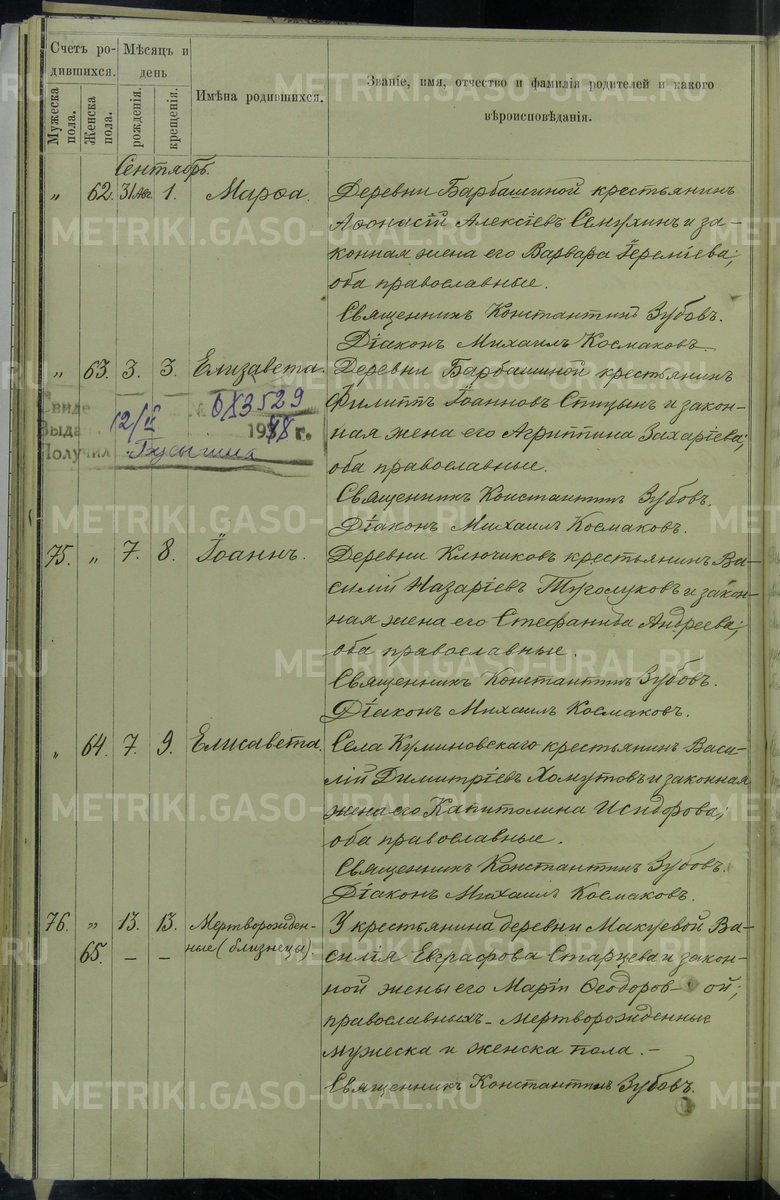 Счетъ ро-
дившихся.
Мѣсяцъ и
день
Мужеска пола.
Женска пола.
рожденія.
крещенія.
Имѣна родившихся.
Званіе, имя, отчество и фамилія родителей и какого
вѣроисповѣданія.
Сентябрь.
„ 62. 31 Авг. 1. Марѳа.
Деревни Барбашиной крестьянинъ
Аѳонасій Алексіевъ Сенухинъ и за-
конная жена его Варвара Іереміева;
оба православные.
Священникъ Константинъ Зубовъ.
Діаконъ Михаилъ Космаковъ.
„ 63. 3. 3. Елизавета.
Деревни Барбашиной крестьянинъ
Филиппъ Іоанновъ Спицынъ и закон-
ная жена его Агриппина Захаріева;
оба православные.
Священникъ Константинъ Зубовъ.
Діаконъ Михаилъ Космаковъ.
Свиде № 083529
Выда 12/II 1948 г.
Получил
75. „ 7. 8. Іоаннъ.
Деревни Ключиковъ крестьянинъ Ва-
силій Назаріевъ Туголуковъ и закон-
ная жена его Стефанида Андреева;
оба православные.
Священникъ Константинъ Зубовъ.
Діаконъ Михаилъ Космаковъ.
„ 64. 7. 9. Елисавета.
Села Куминовскаго крестьянинъ Васи-
лій Димитріевъ Хомутовъ и законная
жена его Капитолина Исидорова;
оба православные.
Священникъ Константинъ Зубовъ.
Діаконъ Михаилъ Космаковъ.
76. „ 13. 13. Мертворожден-
65. – – ные (близнецы)
У крестьянина деревни Макуевой Ва-
силія Евграфова Старцева и закон-
ной жены его Маріи Ѳеодоров- ой;
православныхъ – мертворожденные
мужеска и женска пола. –
Священникъ Константинъ Зубовъ.
METRIKI.GASO-URAL.RU